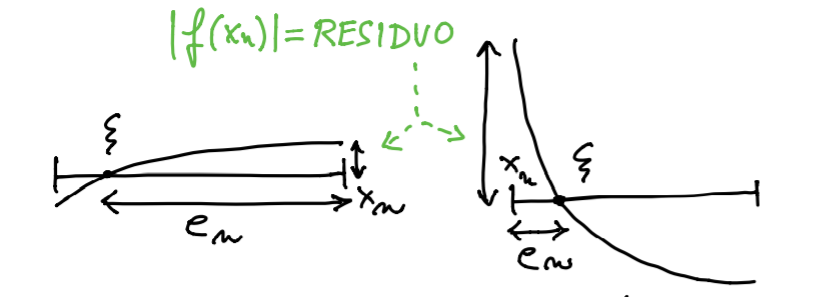 |f(xₙ)| = RESIDUO
ξ
xₙ
eₙ
xₙ
ξ
eₙ